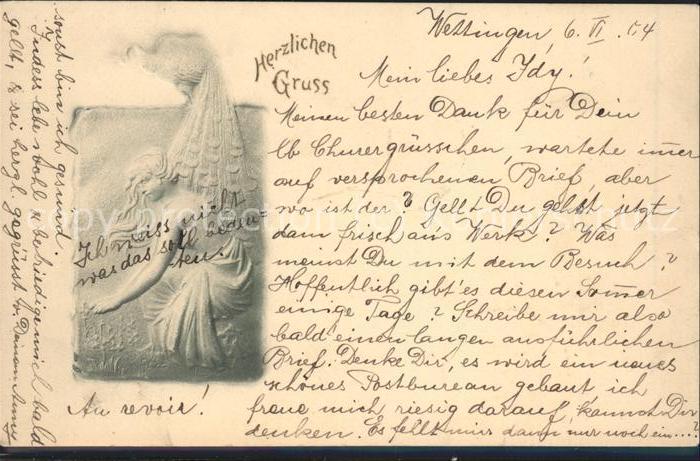 Herzlichen
Gruss
Wettingen, 6. VI. 04
Mein liebes Idy!
Meinen besten Dank für Dein
lb Churergrüsschen, wartete imer
auf versprochenen Brief, aber
wo ist der? Gell Du gehst jetzt
dann frisch an's Werk? Was
meinst Du mit dem Besuch?
Hoffentlich gibt es diesen Somer
einige Tage? Schreibe mir also
bald einen langen ausführlichen
Brief. Denke Dir, es wird ein neues
schönes Postbureau gebaut ich
freue mich riesig darauf, kannst Dir
denken. Es fehlt mir dann nur noch ein....?
Ich weiss nicht
was das soll bedeu=
ten.
Au revoir!
sonst bin ich gesund.
Indess lebe wohl & befriedige mich bald
gelt, & sei herzl. gegrüsst v. Deinem Anny